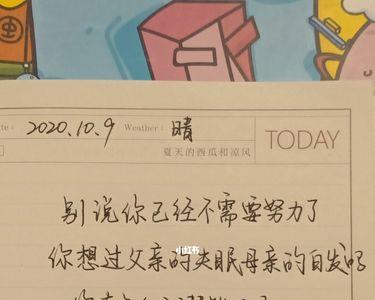 ate : 2020.10.9 Weather : 晴
夏天的西瓜和凉风
TODAY
别说你已经不需要努力了
小红书
你想过父亲的失眠母亲的白发吗